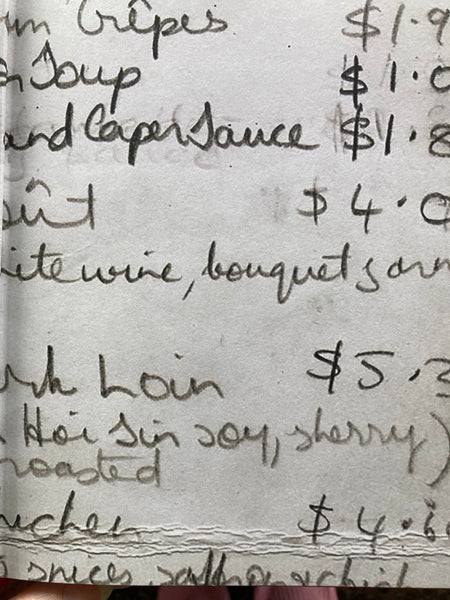 Crêpes $1.9
Soup $1.0
and Caper Sauce $1.8
oût $4.0
ite wine, bouquet garn
rk Loin $5.3
Hoi Sin soy, sherry)
roasted
$4.6
spices, saffron